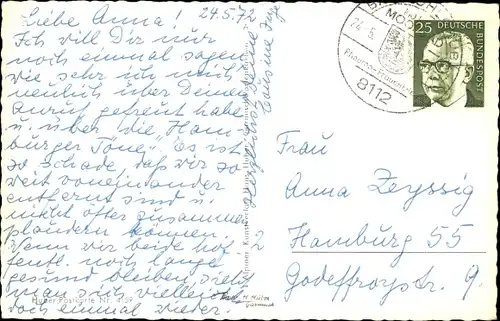 Liebe Anna! 24.5.72
Ich will Dir nur
noch einmal sagen
wie sehr ich mich
neulich über Deinen
Anruf gefreut habe
u. über die "Ham-
burger Töne". Es ist
so schade, daß wir so
weit voneinander
entfernt sind u.
nicht öfter zusammen
plaudern können.
Wenn wir beide hof-
fentl. noch lange
gesund bleiben sieht
man sich vielleicht
doch einmal wieder.
Herzlichst Deine
Huber-Postkarte Nr. 4139
24.5.
8112
25
DEUTSCHE
BUNDESPOST
Frau
Anna Zeyssig
Hamburg 55
Godeffroystr. 9.